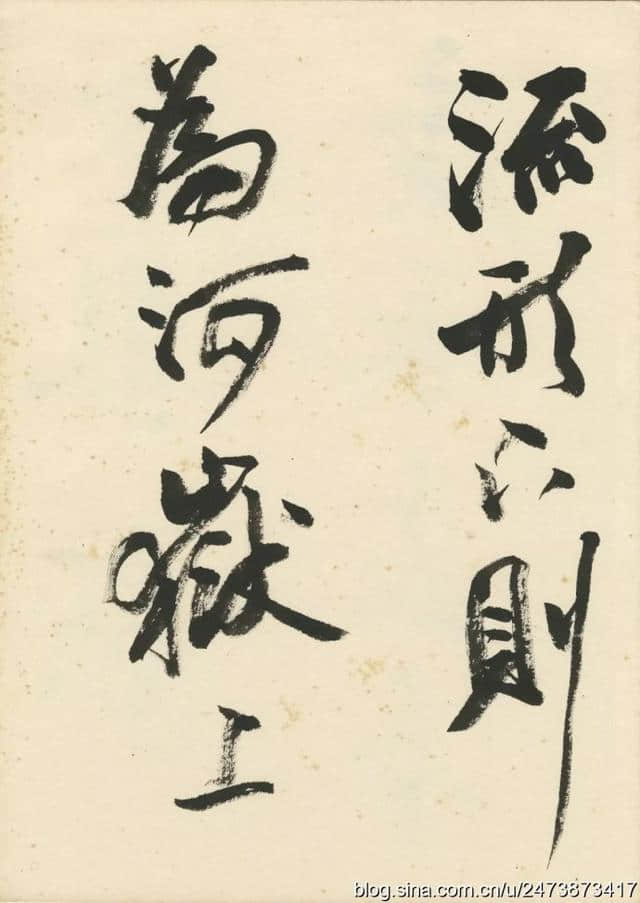 流形下則
為河嶽上
blog.sina.com.cn/u/2473873417